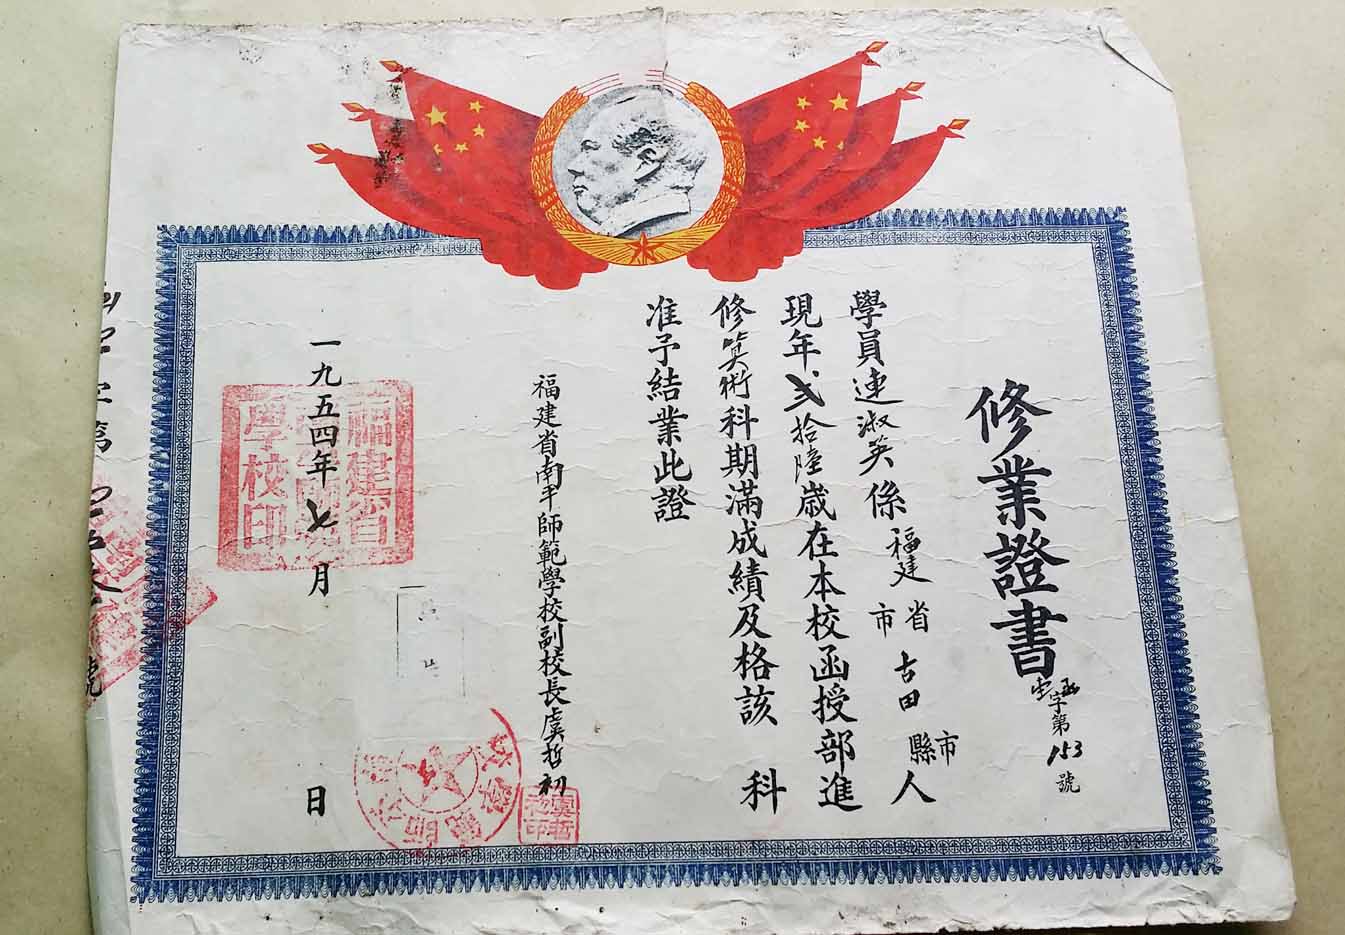 修業證書
字第153號
學員連淑英係福建省市古田縣市人
現年弍拾陸歲在本校函授部進
修算術科期滿成績及格該科
准予結業此證
福建省南平師範學校副校長虞哲初
一九五四年七月日
福建省
學校印